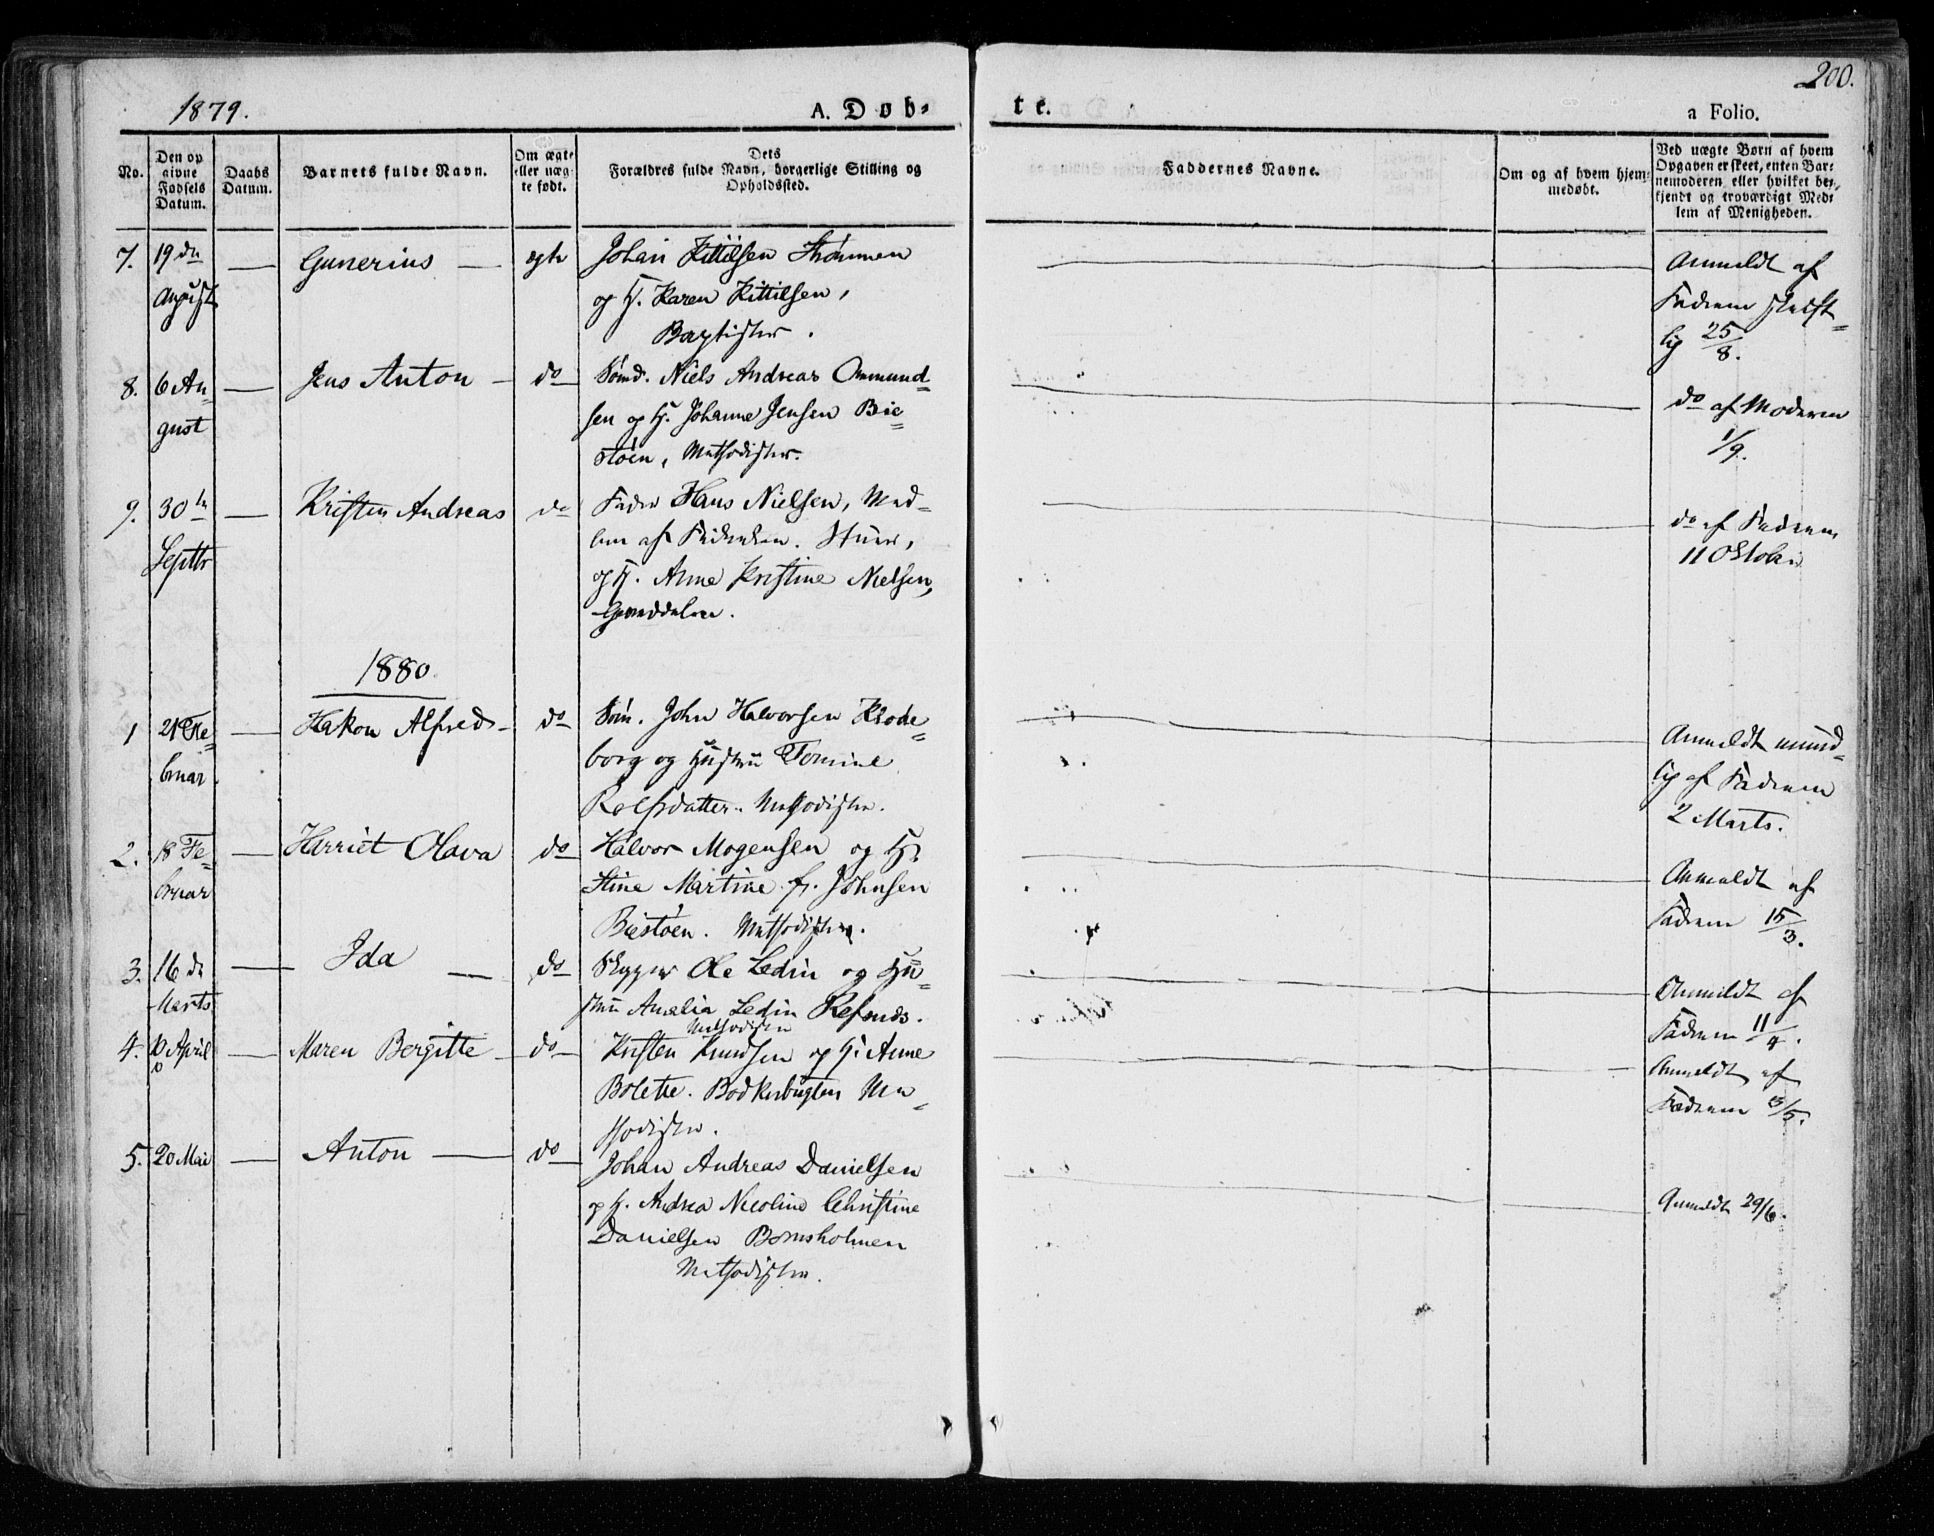 1879.
A. Døb-
te.
200.
a Folio.
No.
Den op
givne
Fødsels
Datum.
Daabs
Datum.
Barnets fulde Navn.
Om ægte
eller uæg-
te født.
Dets
Forældres fulde Navn, borgerlige Stilling og
Opholdssted.
Faddernes Navne.
Om og af hvem hjem-
medøbt.
Ved uægte Børn af hvem
Opgaven er skeet, enten Bar-
nemoderen eller hvilket be-
kjendt og troværdigt Med-
lem af Menigheden.
7. 19de Gunerius ægte Johan Kittilsen Strømmen
August og H. Karen Kittilsen,
Baptister.
Anmeldt af
Faderen skrift-
lig 25/8.
8. 6 Au- Jens Anton do Sømd. Niels Andreas Ommund-
gust sen og H. Johanne Jensen Bie-
støen, Methodister.
do af Moderen
1/9.
9. 30te Kristen Andreas do Fader Hans Nielsen, Med-
Septbr lem af Frikirken.
og H. Anne Kristine Nielsen,
do af Faderen
11 Oktober
1880.
1 21 Fe- Hakon Alfred do Søm. John Halvorsen Klode-
bruar borg og Hustru Tomine
Rolfsdatter. Methodister.
Anmeldt mund-
lig af Faderen
2 Marts.
2. 18 Fe- Harriet Olava do Halvor Mogensen og H.
bruar Stine Martine f. Johnsen
Biestøen. Methodister.
Anmeldt af
Faderen 15/3.
3. 16de Ida do Skipper Ole Ledin og Hu-
Marts stru Amalia Ledin Refsnæs.
Methodister
Anmeldt af
Faderen 11/4.
4. 10 April Maren Bergitte do Kristen Knudsen og H. Anne
Bolette. Bodkerbugten Me-
thodister.
Anmeldt af
Faderen 3/5.
5. 20 Mai Anton do Johan Andreas Danielsen
og H. Andrea Nicoline Christine
Danielsen Bomsholmen
Methodister.
Anmeldt 29/6.